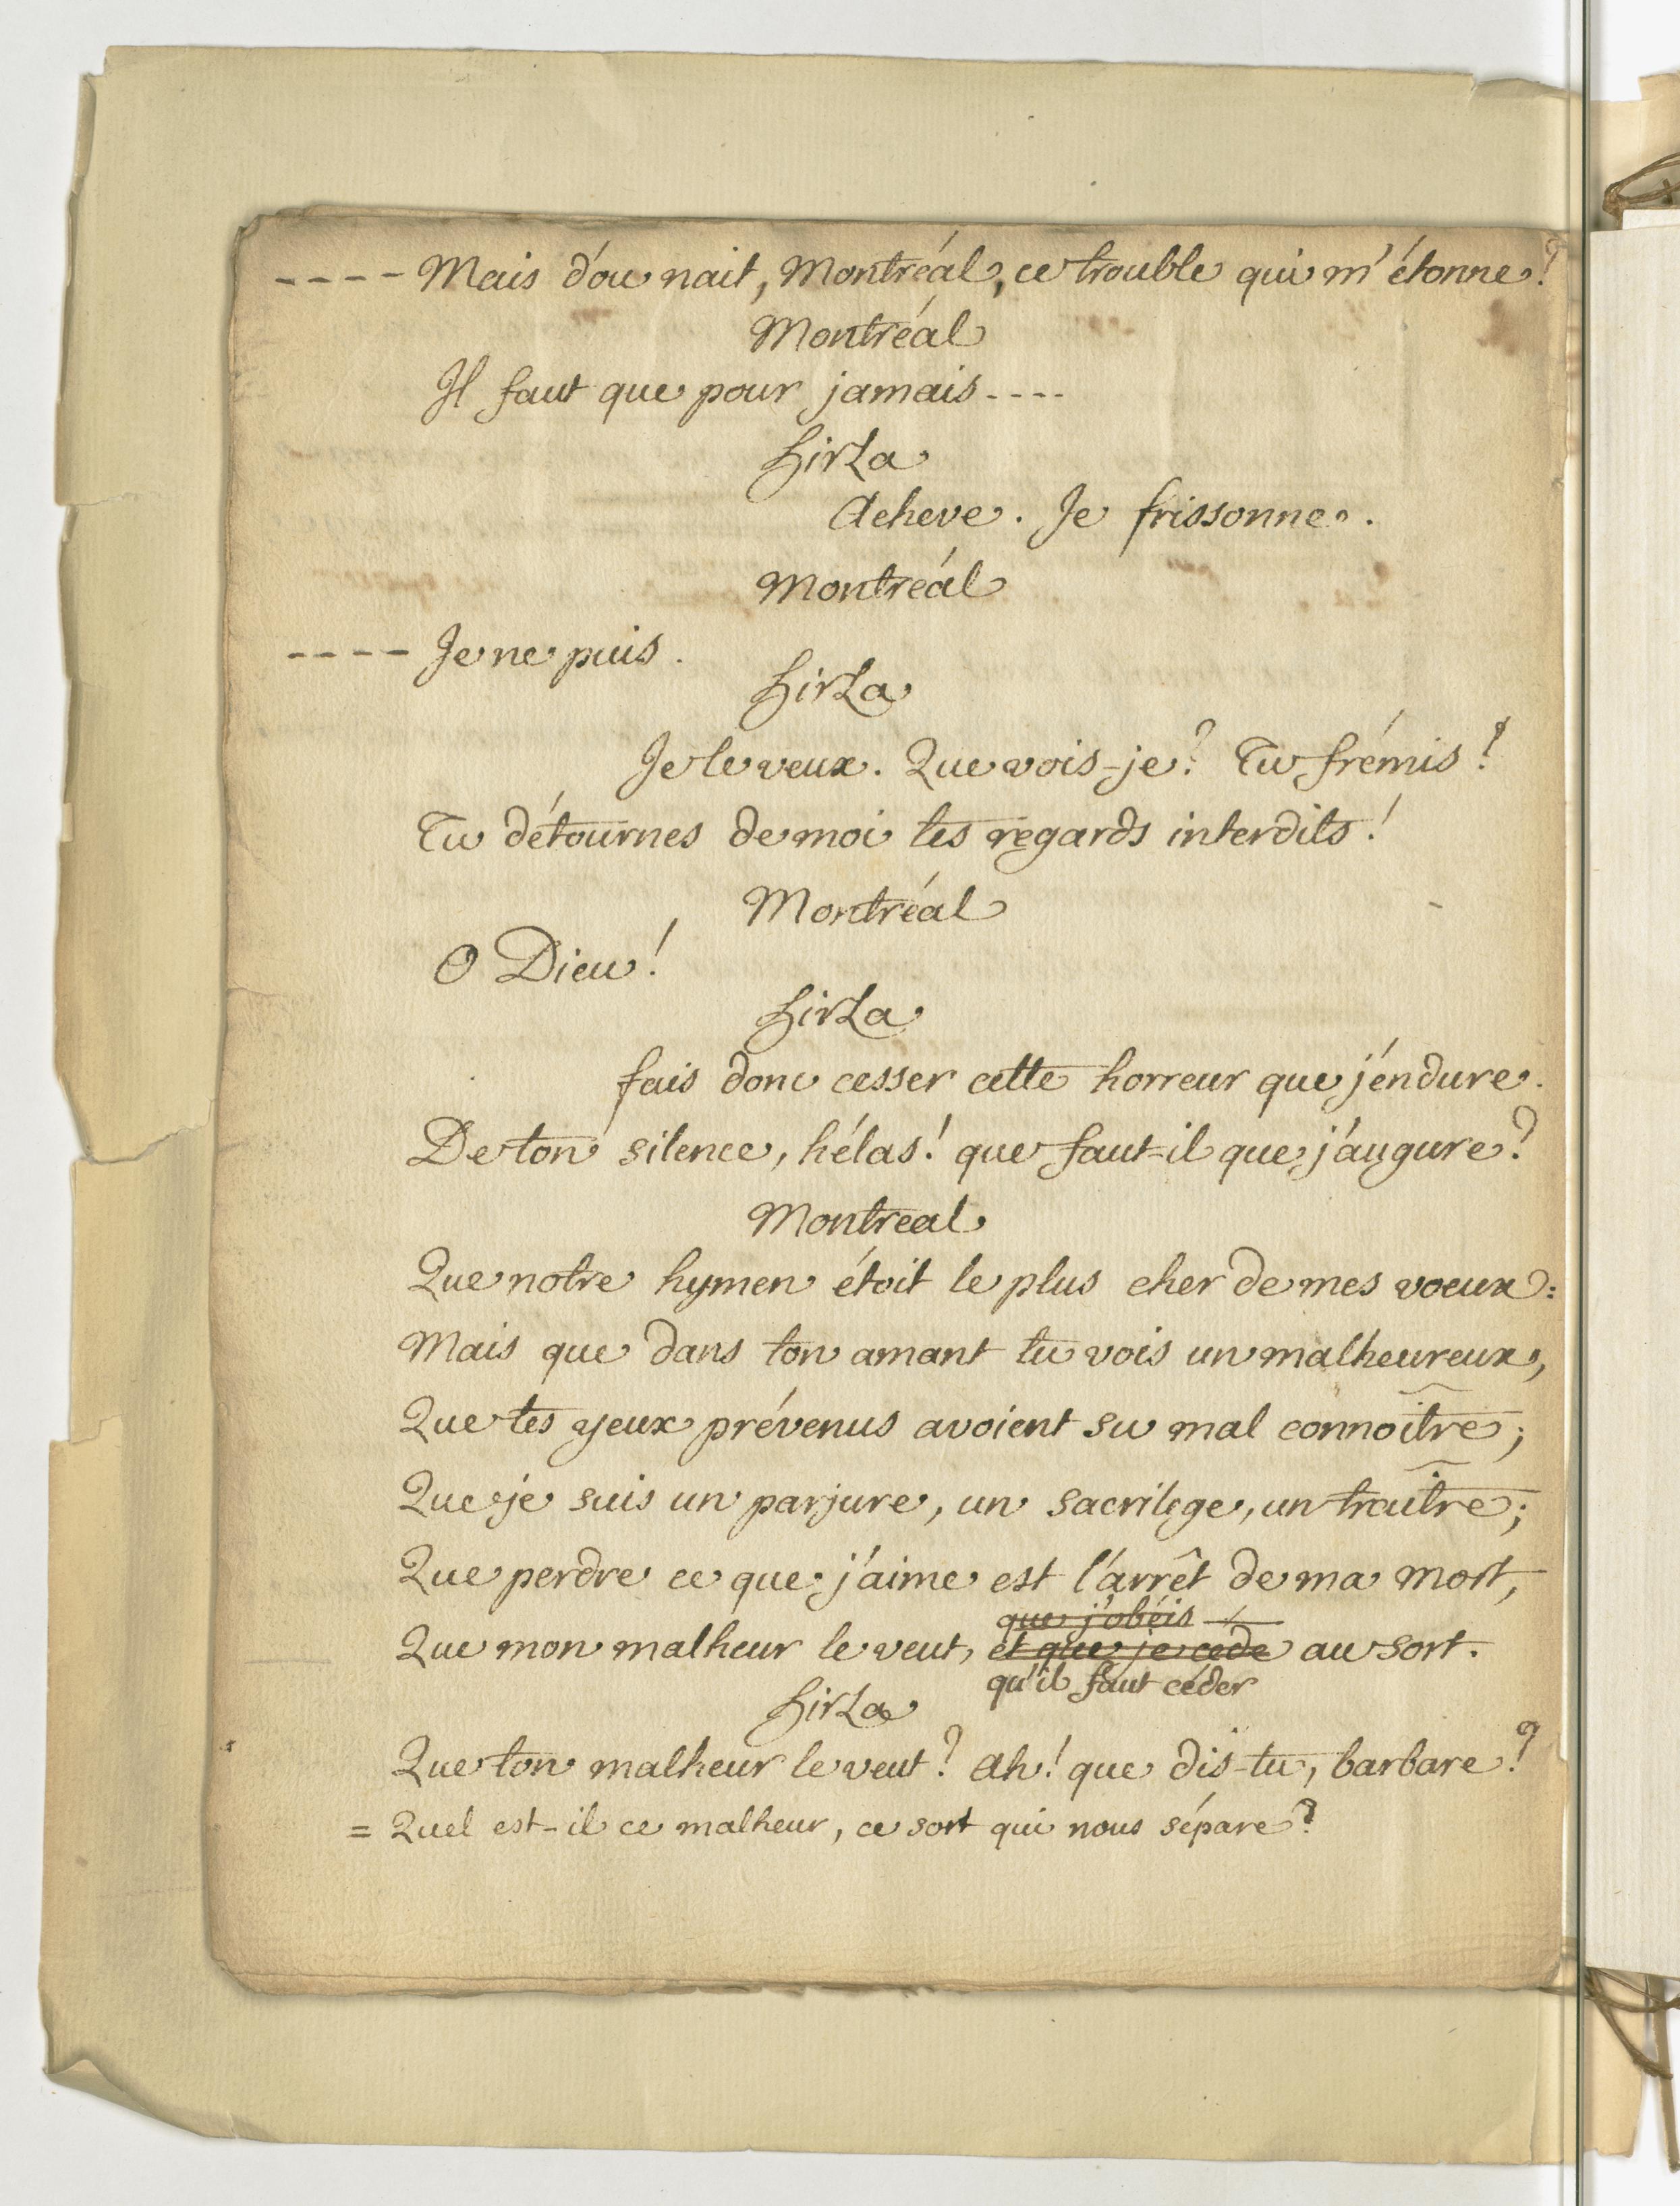 ---- Mais d'ou nait, Montréal, ce trouble qui m'étonne?
Montréal
Il faut que pour jamais ----
hirza
Acheve. Je frissonne.
Montréal
---- Je ne puis.
hirza
Je le veux. Que vois-je? Tu frémis!
Tu détournes de moi tes regards interdits!
Montréal
O Dieu!
hirza
fais donc cesser cette horreur que j'endure.
De ton silence, hélas! que faut-il que j'augure?
Montreal
Que notre hymen étoit le plus cher de mes voeux:
Mais que dans ton amant tu vois un malheureux,
Que tes yeux prévenus avoient su mal connoître;
Que je suis un parjure, un sacrilege, un traître;
Que perdre ce que j'aime est l'arrêt de ma mort,
que j'obéis
Que mon malheur le veut, et que je cede au sort.
qu'il faut céder
hirza
Que ton malheur le veut? Ah! que dis-tu, barbare?
= Quel est-il ce malheur, ce sort qui nous sépare?